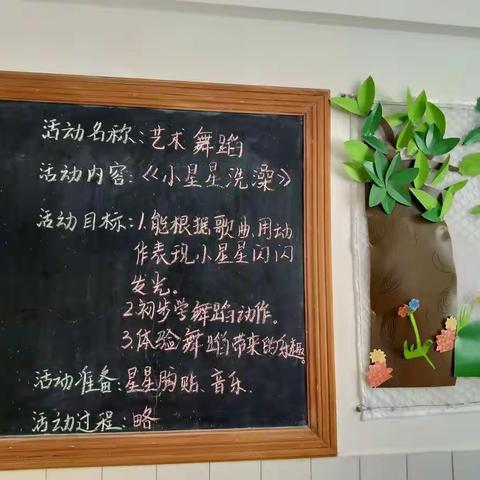 活动名称:艺术舞蹈
活动内容:《小星星洗澡》
活动目标:1.能根据歌曲,用动
作表现小星星闪闪
发光。
2.初步学舞蹈动作。
3.体验舞蹈带来的乐趣。
活动准备:星星胸贴、音乐.
活动过程:略